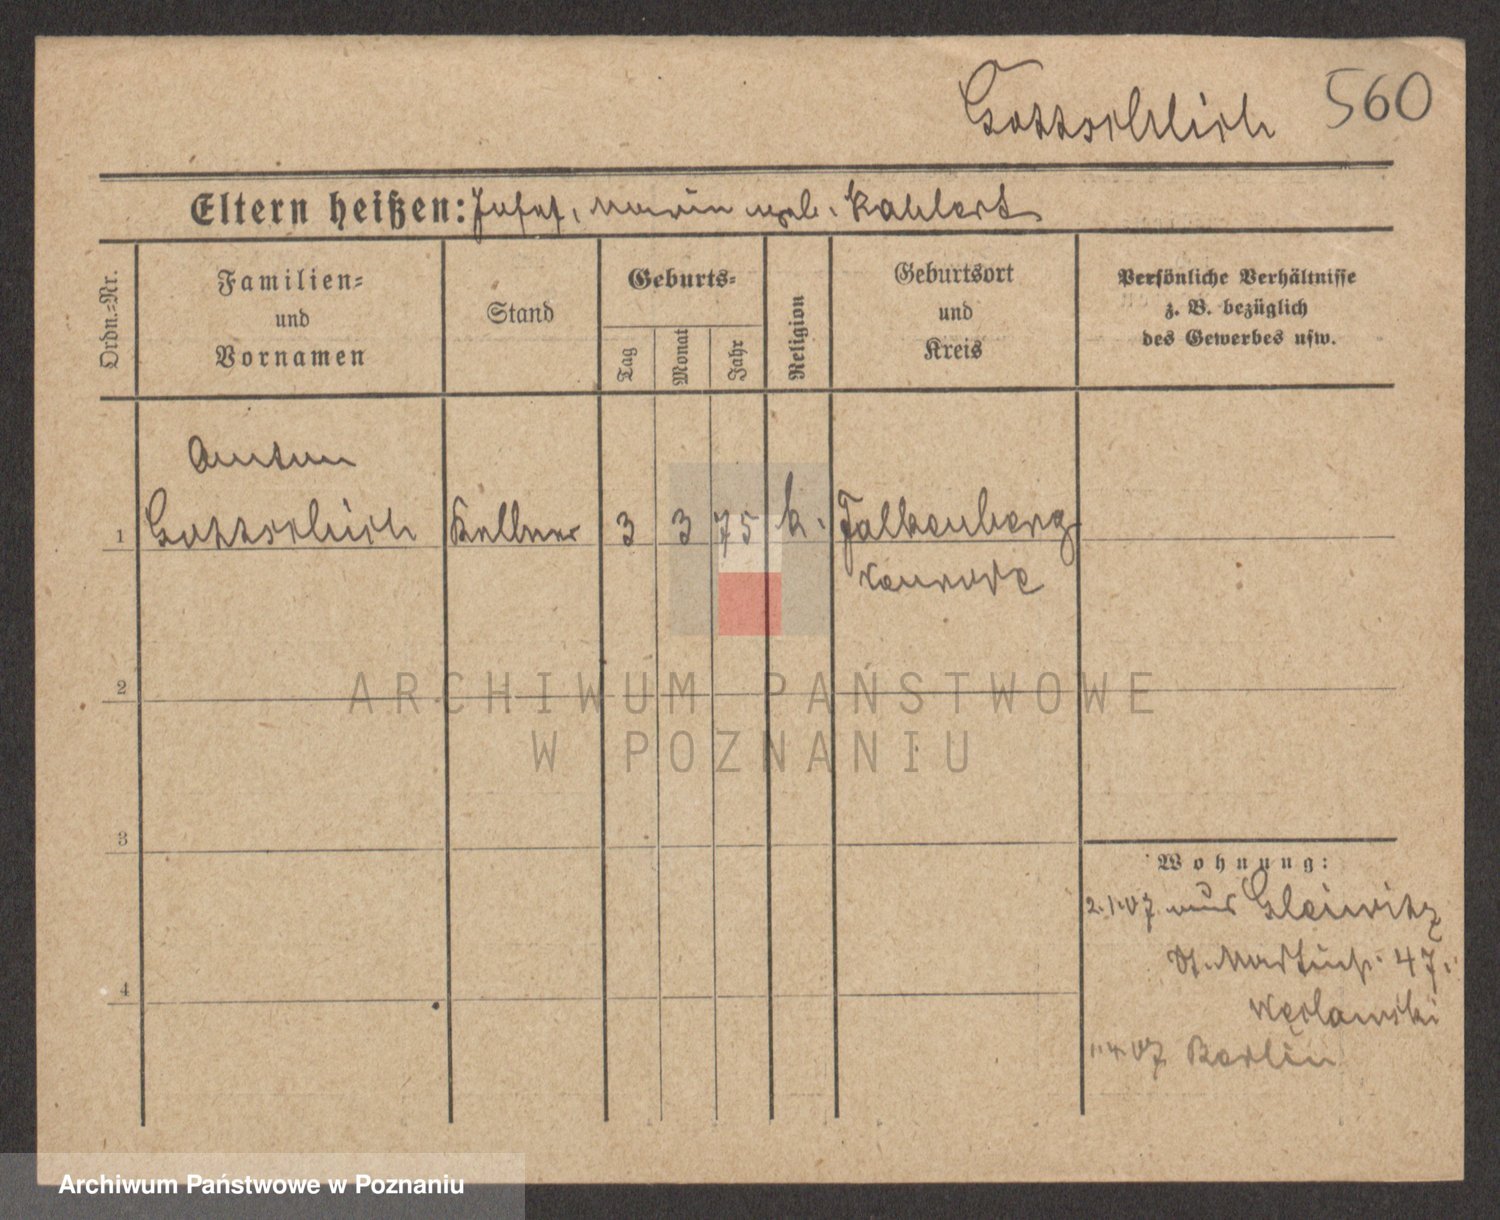 Gottschlich 560
Eltern heißen: Josef, Maria geb. Kahlert
Ordn.=Nr.
Familien=
und
Vornamen
Stand
Geburts=
Tag
Monat
Jahr
Religion
Geburtsort
und
Kreis
Persönliche Verhältnisse
z. B. bezüglich
des Gewerbes usw.
Anton
1 Gottschlich Kellner 3 3 75 k. Falkenberg
Neurode
2
ARCHIWUM PAŃSTWOWE
W POZNANIU
3
Wohnung:
2.1.07 aus Gleiwitz
St. Martinstr. 47.
4
1.4.07 Berlin
Archiwum Państwowe w Poznaniu